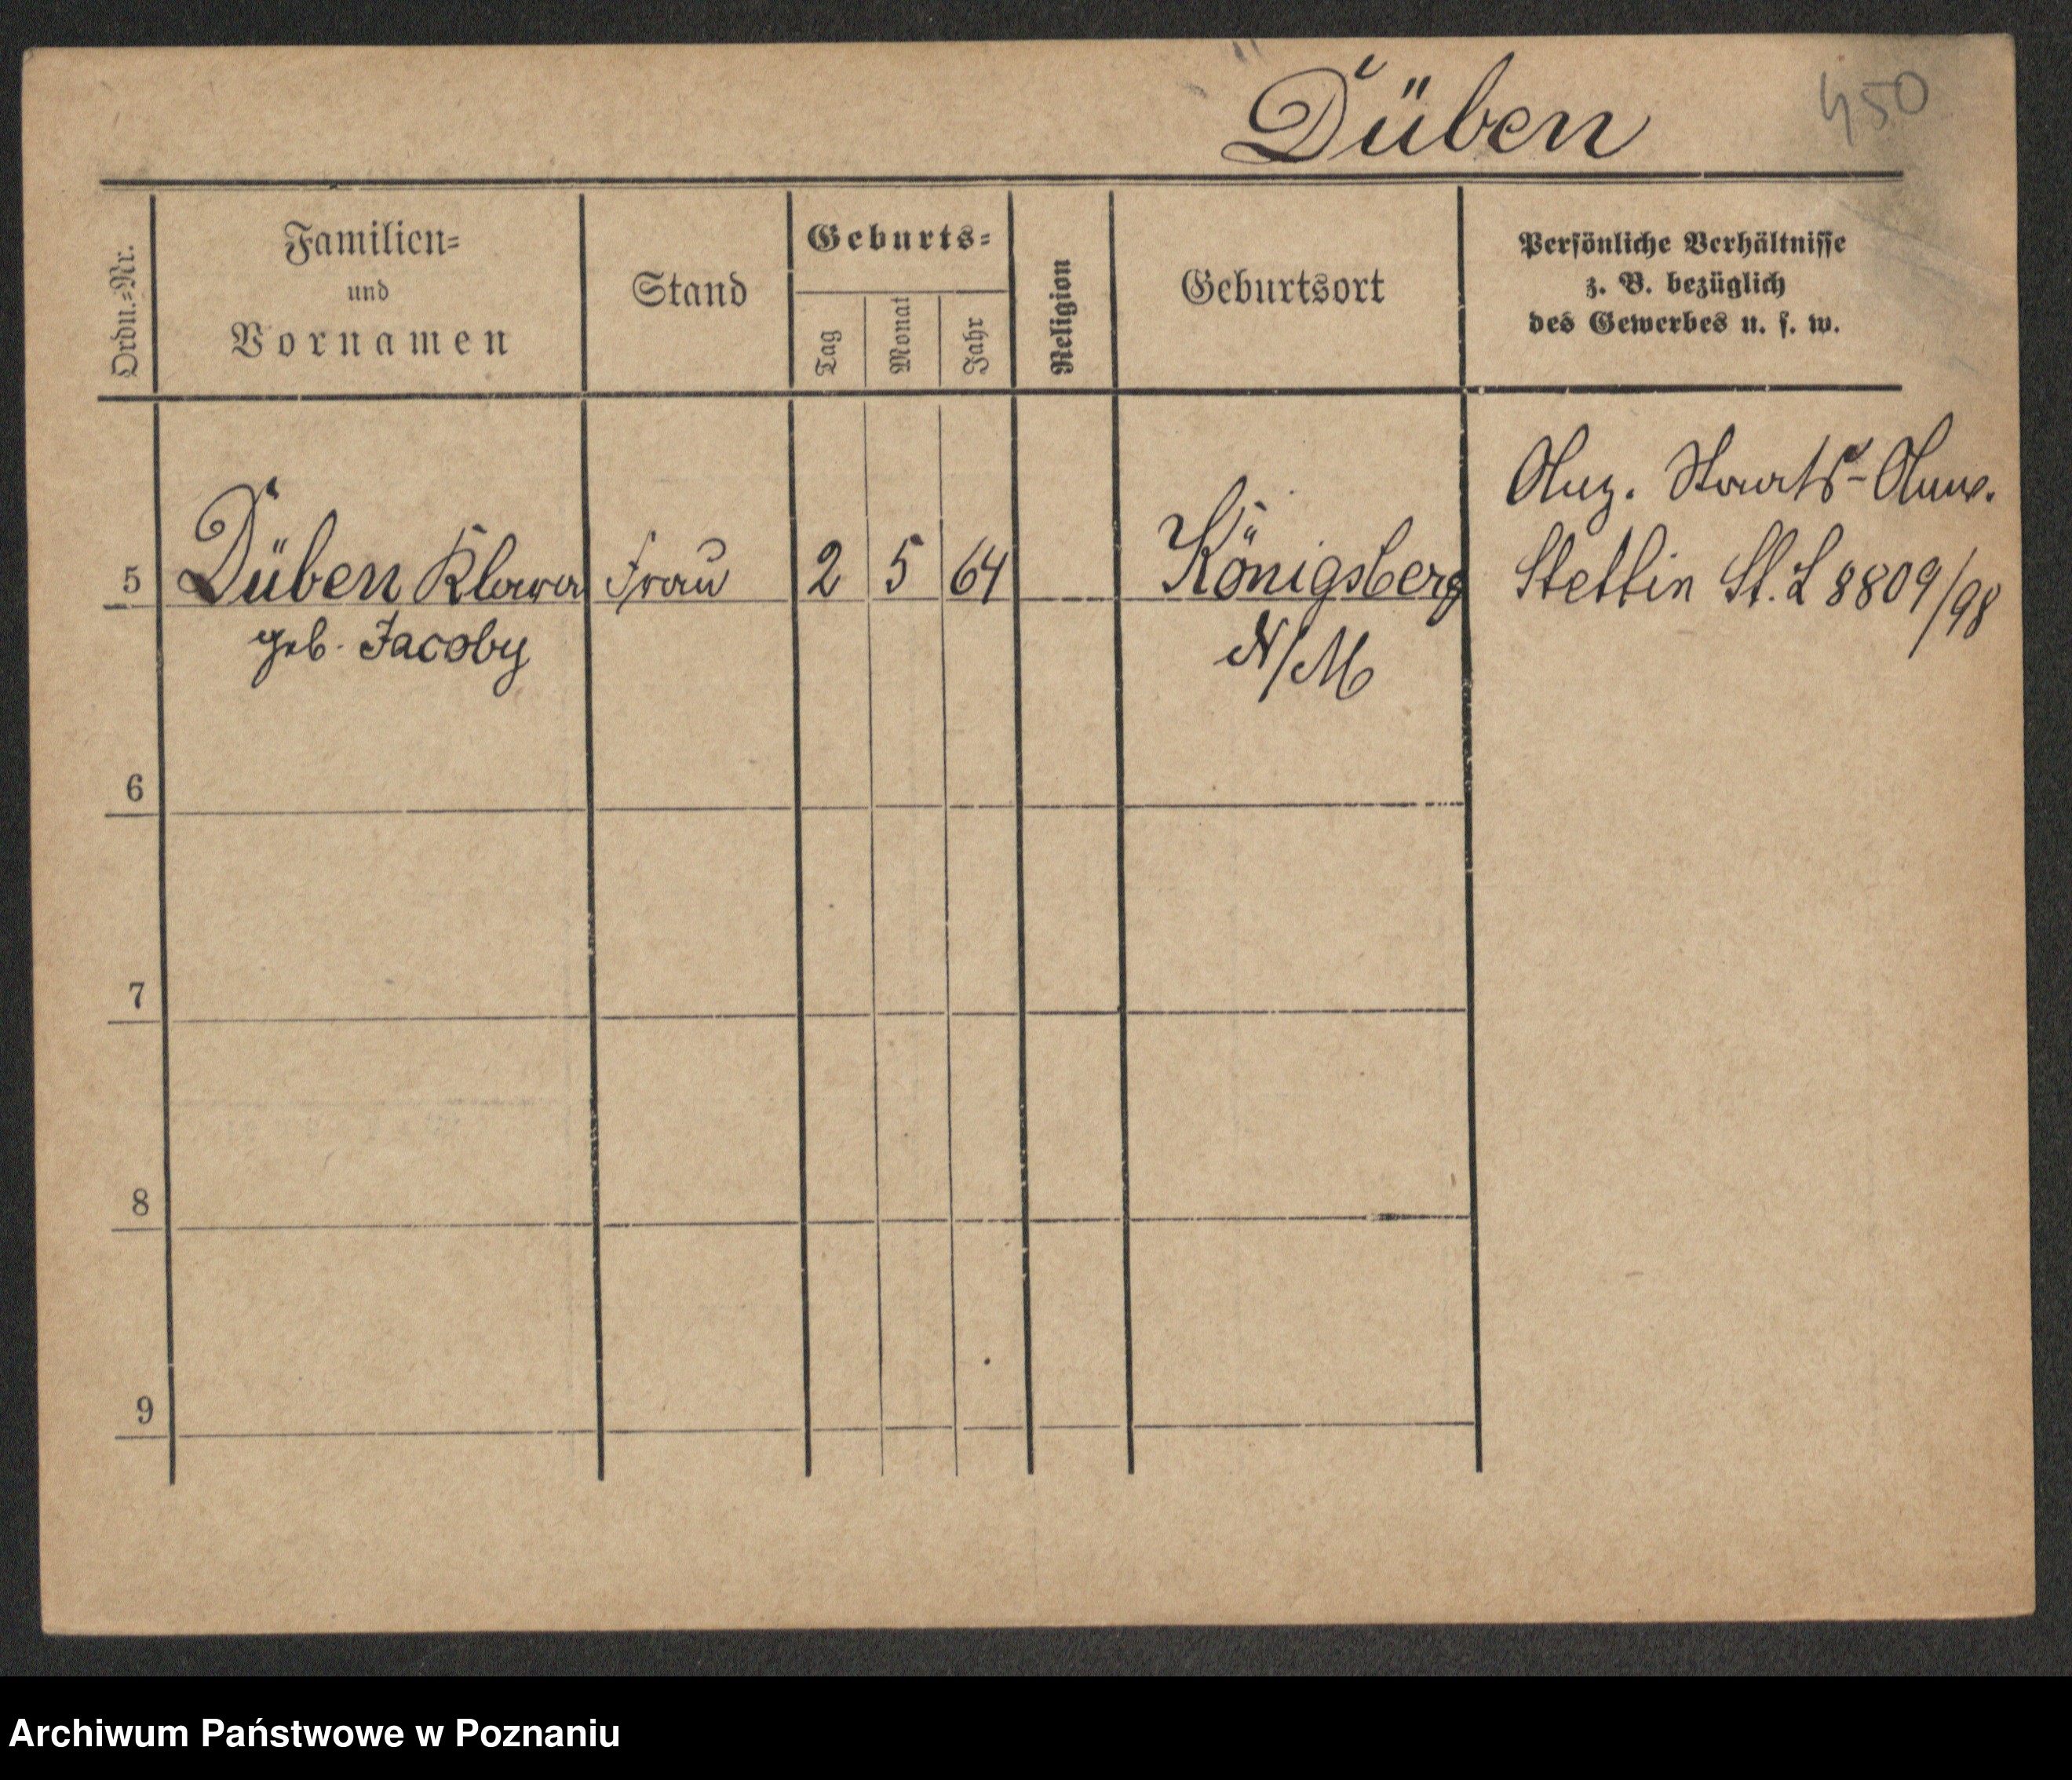 Düben
450
Ordn.=Nr.
Familien=
und
Vornamen
Stand
Geburts=
Tag
Monat
Jahr
Religion
Geburtsort
Persönliche Verhältnisse
z. B. bezüglich
des Gewerbes u. s. w.
Anz. Staats-Anw.
5 Düben Klara Frau 2 5 64 Königsberg Stettin St. L 8809/98
geb. Jacoby N/M
6
7
8
9
Archiwum Państwowe w Poznaniu